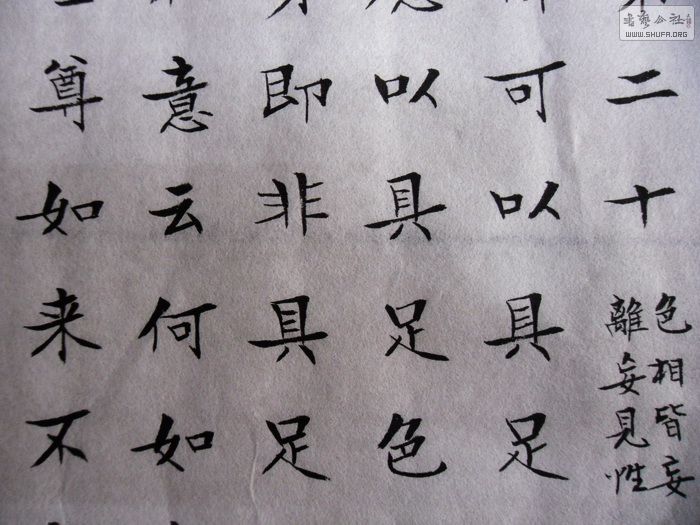 二十
色相皆妄
離妄見性
可以具足
以具足色
即非具足
意云何如
尊如来不
WWW.SHUFA.ORG